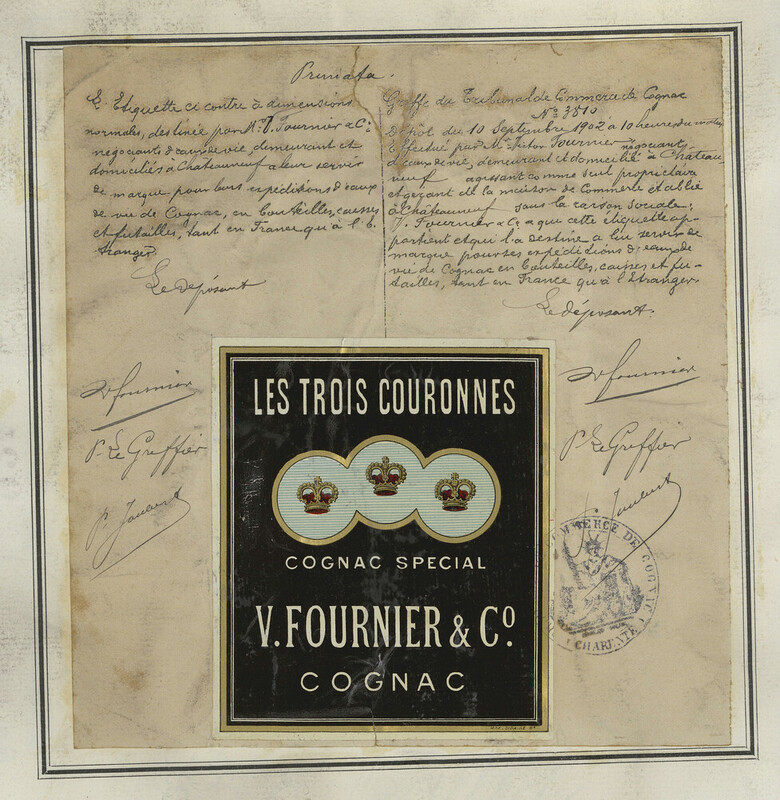 Primata.
L'Etiquette ci contre à dimensions
normales, destinée par Mr. V. Fournier & Cie
négociants d'eaux de vie, demeurant et
domiciliés à Châteauneuf a leur servir
de marque pour leurs expéditions d'eaux
de vie de Cognac, en bouteilles, caisses
et futailles, tant en France qu'à l'é-
tranger.
Le déposant
V Fournier
P. Le Greffier
P. Jaubert
Greffe du Tribunal de Commerce de Cognac
No 3810
Dépôt du 10 Septembre 1902 à 10 heures du matin
Effectué par Mr Victor Fournier négociants
d'eaux de vie, demeurant et domicilié à Château-
neuf agissant comme seul propriétaire
et gérant de la maison de Commerce établie
à Châteauneuf sous la raison sociale:
V. Fournier & Cie & que cette étiquette ap-
partient et qu'il a destiné a lui servir de
marque pour ses expéditions d'eaux de
vie de Cognac en bouteilles, caisses et fu-
tailles, tant en France qu'à l'Etranger.
Le déposant.
V Fournier
P. Le Greffier
Jaubert
COMMERCE DE COGNAC
CHARENTE
LES TROIS COURONNES
COGNAC SPECIAL
V. FOURNIER & Cº
COGNAC